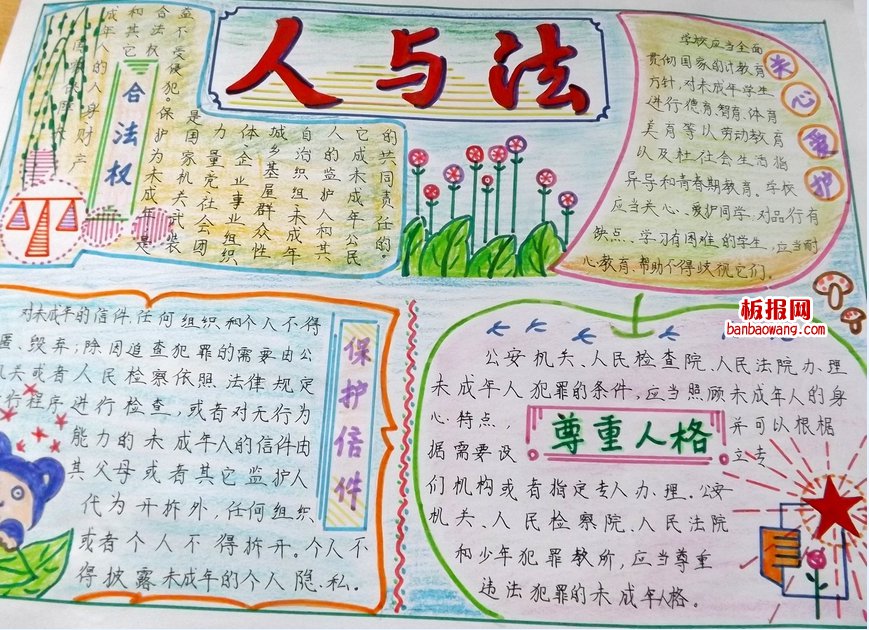 人与法
成年人的人身财产
和其它
合法权
益不受侵犯。保护为未成年
是国家机关武装
力量党社会团
体、企业事业组织
城乡基层群众性
自治织组未成年
人的监护人和其
它成未成年公民
的共同责任的。
合法权
关心爱护
学校应当全面
贯彻国家的计教育
方针,对未成年学生
进行德育智育、体育
美育等以劳动教育
以及社社会生活指
异导和青春期教育。学校
应当关心、爱护同学、对品行有
缺点、学习有困难的学生,应当耐
心教育、帮助不得歧视它们。
板报网
banbaowang.com
对未成年的信件,任何组织和个人不得
匿、毁弃;除因追查犯罪的需要由公
机关或者人民检察依照法律规定
行程序进行检查,或者对无行为
能力的未成年人的信件由
其父母或者其它监护人
代为开拆外,任何组织
或者个人不得拆开。个人不
得披露未成年的个人隐、私。
保护信件
公安机关、人民检查院、人民法院办、理
未成年人犯罪的条件,应当照顾未成年人的身
心特点,并可以根据
据需要设立专
们机构或者指定专人办、理。公安
机关、人民检察院、人民法院
和少年犯罪教所,应当尊重
违法犯罪的未成年人格。
尊重人格